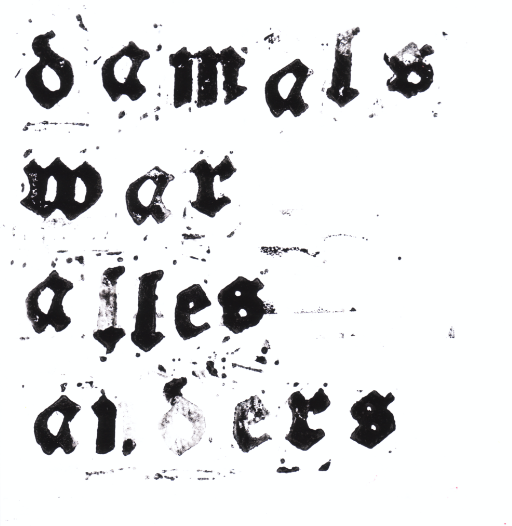 damals
war
alles
anders